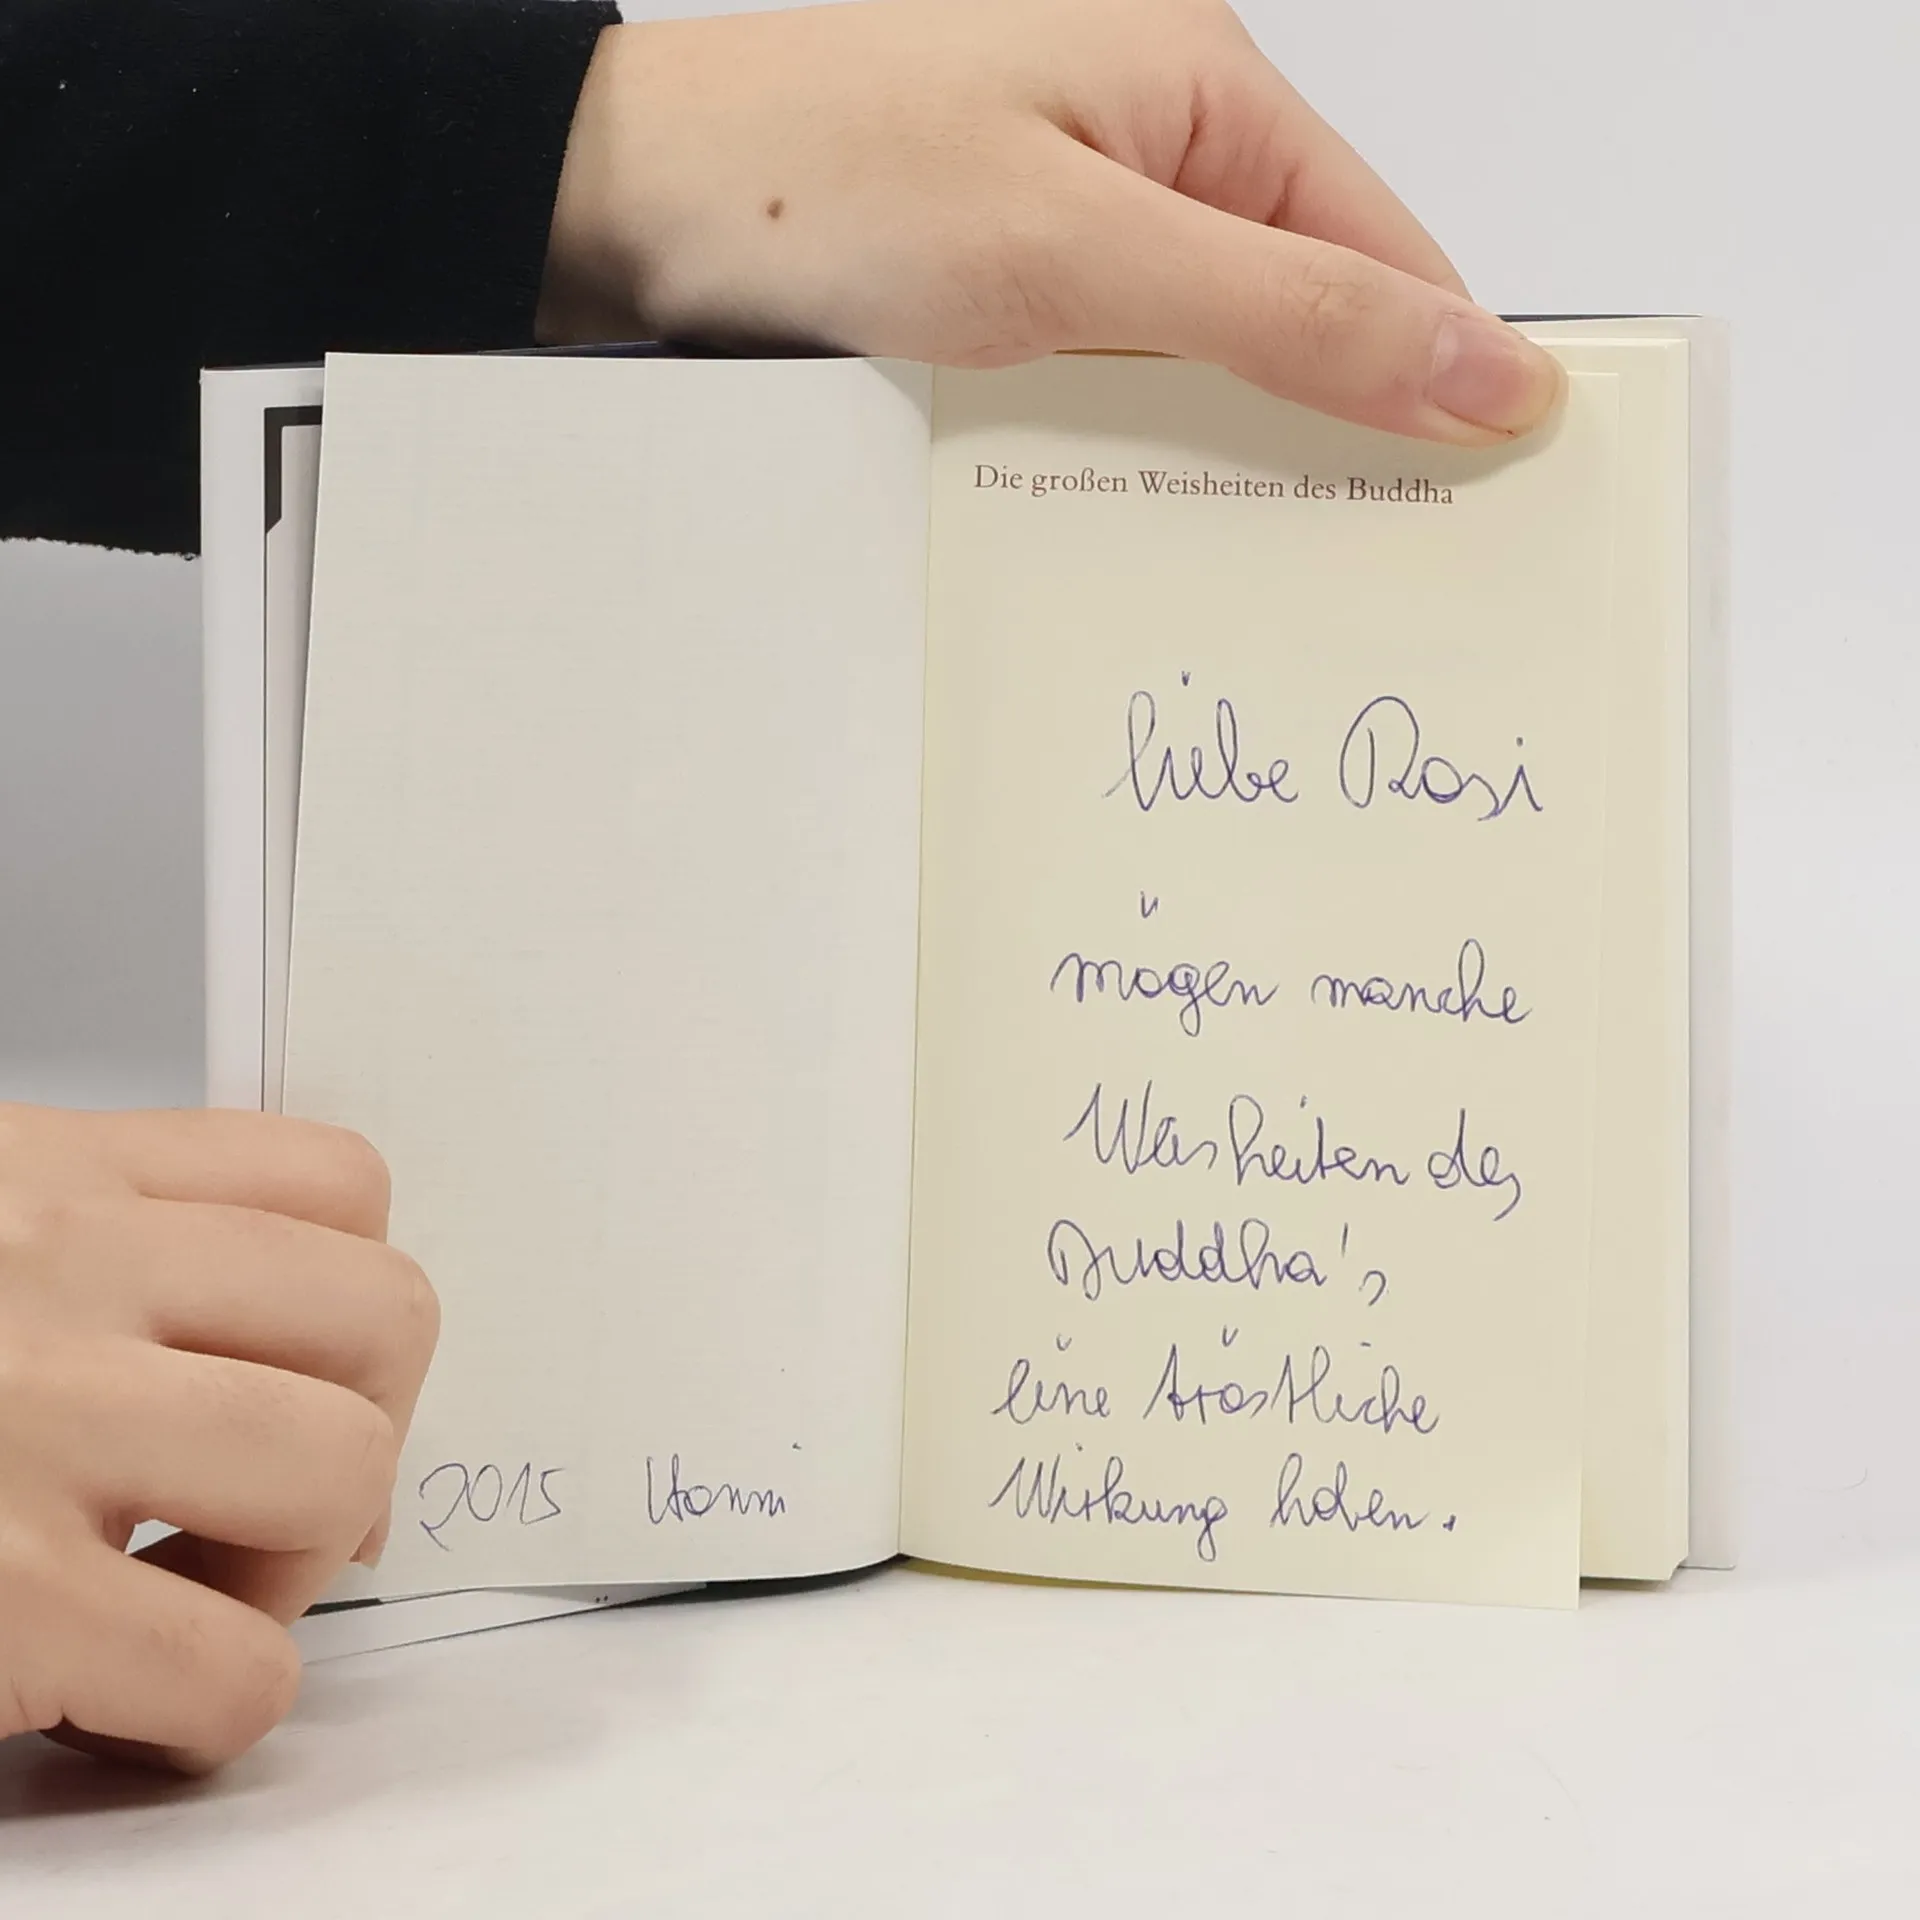 2015 Hanni
Die großen Weisheiten des Buddha
liebe Rosi
mögen manche
Weisheiten des
Buddha's
eine tröstliche
Wirkung haben.